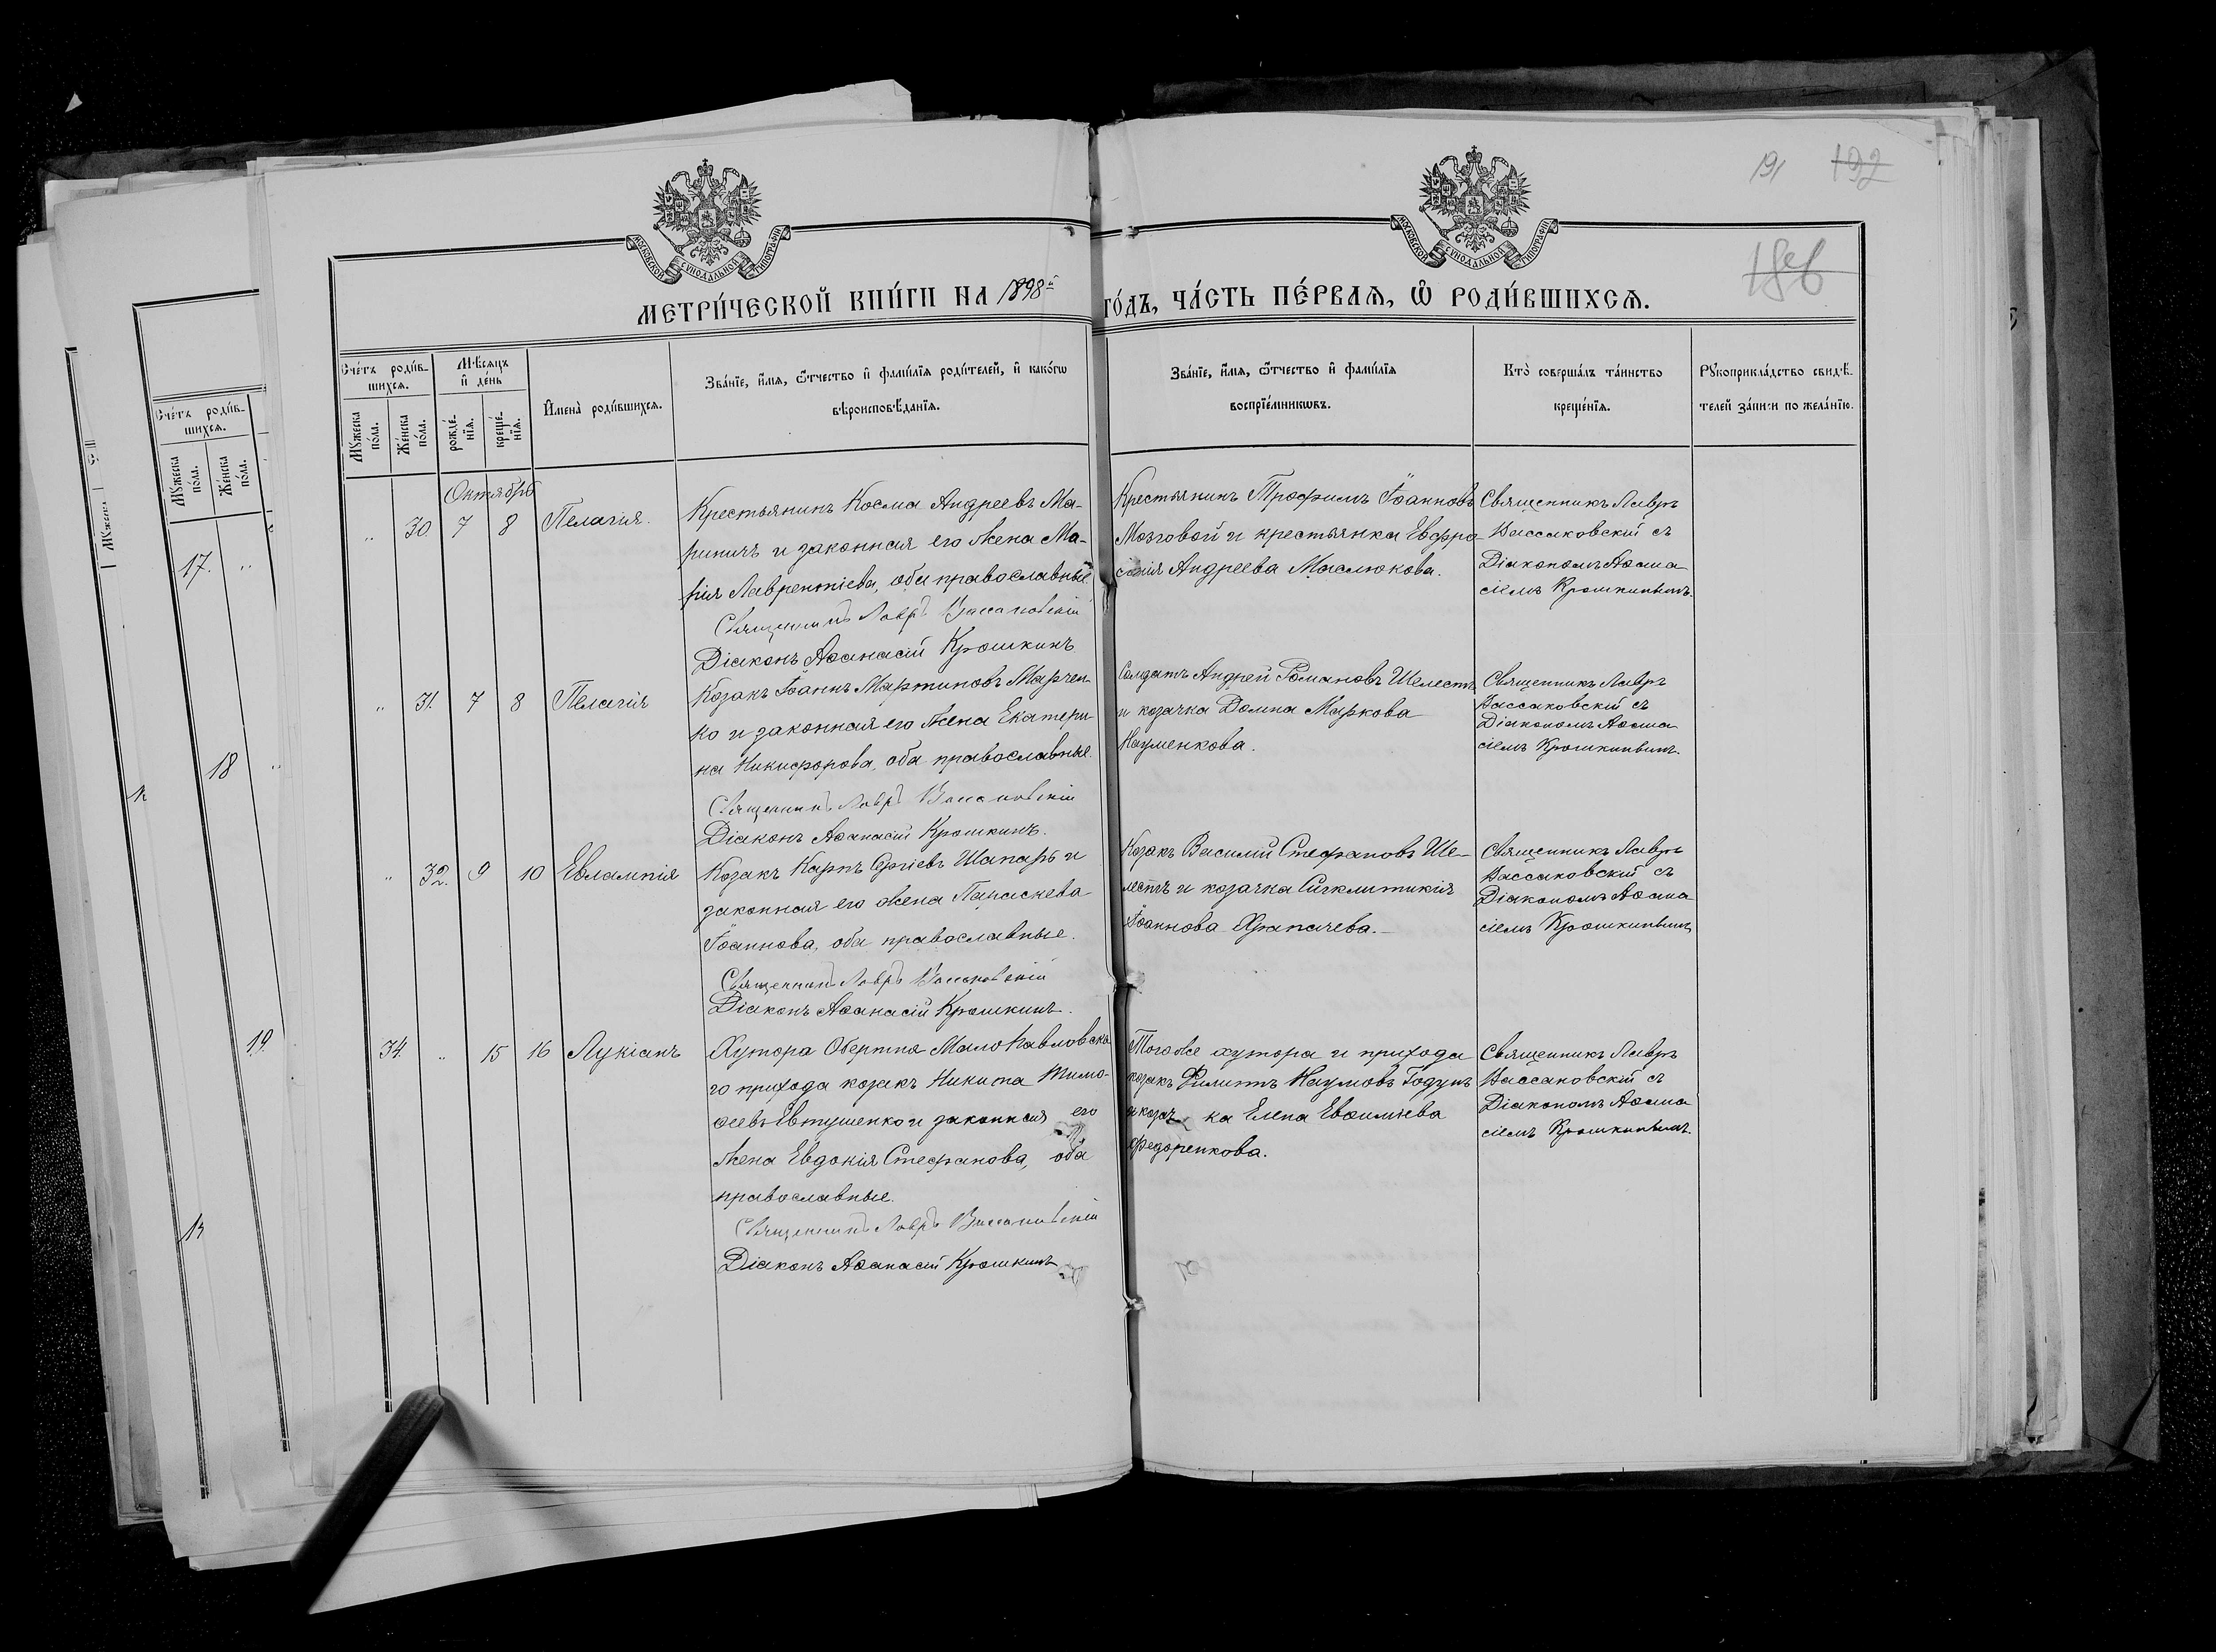 191 192
186
МОСКОВСКОЙ СѴНОДАЛЬНОЙ ТИПОГРАФІИ
МОСКОВСКОЙ СѴНОДАЛЬНОЙ ТИПОГРАФІИ
МЕТРИ́ЧЕСКОЙ КНИ́ГИ НА 1898й ГО́ДЪ, ЧА́СТЬ ПЕ́РВАѦ, Ѡ҆ РОДИ́ВШИХСѦ.
Сче́тъ роди́в-
шихсѧ.
Мꙋ́жеска
по́ла.
Же́нска
по́ла.
Мѣ́сѧцъ
и҆ де́нь
рожде́-
нїѧ.
креще́-
нїѧ.
И҆мена̀ роди́вшихсѧ.
Зва́нїе, и҆́мѧ, ѻ҆́тчество и҆ фами́лїѧ роди́телей, и҆ како́гѡ
вѣроисповѣ́данїѧ.
Зва́нїе, и҆́мѧ, ѻ҆́тчество и҆ фами́лїѧ
воспрїе́мникѡвъ.
Кто̀ соверша́лъ та́инство
креще́нїѧ.
Рꙋкоприкла́дство свидѣ́-
телей за́писи по жела́нїю.
Сче́тъ роди́в-
шихсѧ.
Мꙋ́жеска
по́ла.
Же́нска
по́ла.
17. "
18 "
19.
Октябрь
" 30 7 8 Пелагія.
Крестьянинъ Косма Андреевъ Ма-
риничъ и законная его жена Ма-
рія Лаврентіева, оба православные
Священникъ Лавръ Вассаковскій
Діаконъ Аѳанасій Крошкинъ
Крестьянинъ Трофимъ Іоанновъ
Мозговой и крестьянка Евфро-
синія Андреева Маслюкова.
Священникъ Лавръ
Вассаковскій съ
Діакономъ Аѳана
сіемъ Крошкинымъ.
" 31. 7 8 Пелагія
Козакъ Іоаннъ Мартиновъ Марчен-
ко и законная его жена Екатери
на Никифорова, оба православные.
Священникъ Лавръ Вассаковскій
Діаконъ Аѳанасій Крошкинъ.
Солдатъ Андрей Романовъ Шелестъ
и козачка Домна Маркова
Науменкова.
Священникъ Лавръ
Вассаковскій съ
Діакономъ Аѳана
сіемъ Крошкинымъ.
" 32. 9 10 Евлампія
Козакъ Карпъ Сергіевъ Шапаръ и
законная его жена Параскева
Іоаннова, оба православные.
Священникъ Лавръ Вассаковскій
Діаконъ Аѳанасій Крошкинъ.
Козакъ Василій Стефановъ Ше-
лестъ и козачка Сигклитикія
Іоаннова Храпачева.
Священникъ Лавръ
Вассаковскій съ
Діакономъ Аѳана
сіемъ Крошкинымъ
34. " 15 16 Лукіанъ
Хутора Обертня Малопавловска
го прихода козакъ Никита Тимо-
ѳеевъ Евтушенко и законная его
жена Евдокія Стефанова, оба
православные.
Священникъ Лавръ Вассаковскій
Діаконъ Аѳанасій Крошкинъ
Того же хутора и прихода
козакъ Филиппъ Наумовъ Годунъ
и козач ка Елена Евфиміева
Федоренкова.
Священникъ Лавръ
Вассаковскій съ
Діакономъ Аѳана
сіемъ Крошкинымъ.